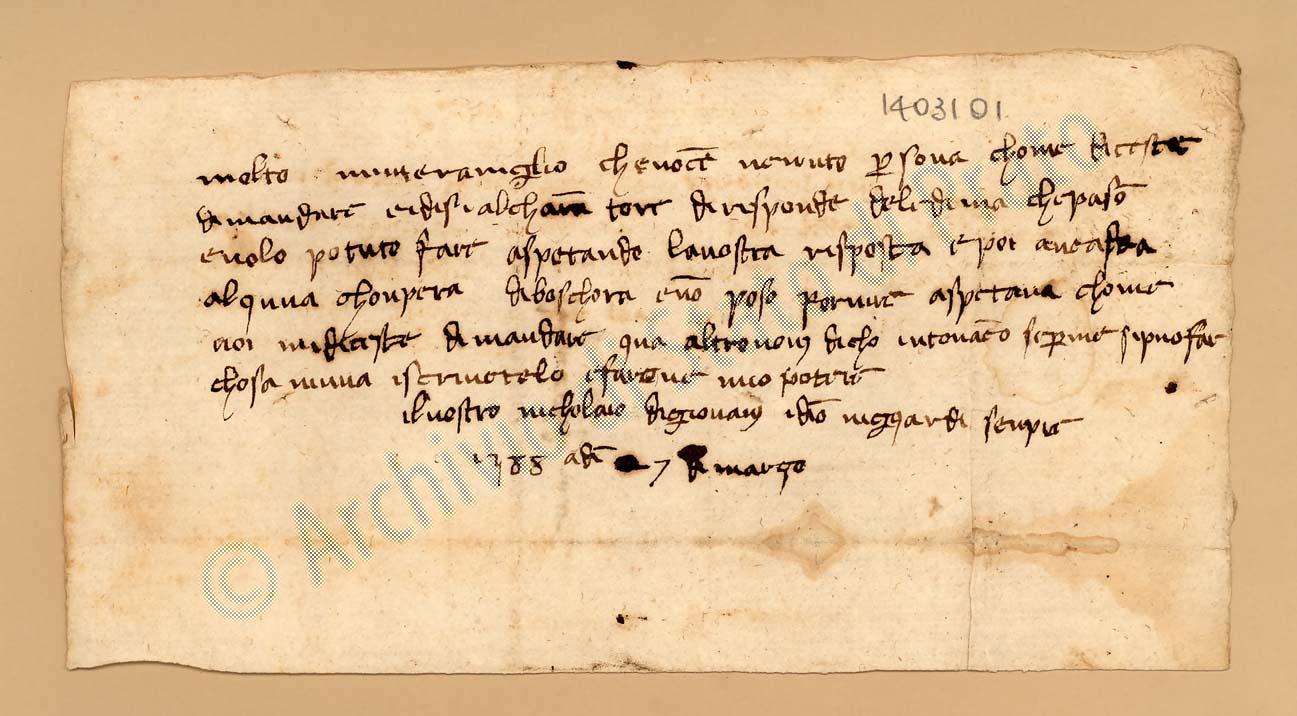 1403101
molto mmeraviglio che non cè venuto persona chome diceste
di mandare e idisi al charatore di risponde dele dima che pasò
e nolo potuto fare aspetando la vostra risposta e poi avea fata
alquna chonpera di boschora e nō poso fornire aspetava chome
voi mi diceste di mandare qua altro non dicho se per me si può fare
chosa niuna iscrivetelo e farone mio potere
il vostro nicholaio di giovani senpre
1388 adì 7 di março
© Archivio di Stato di Prato